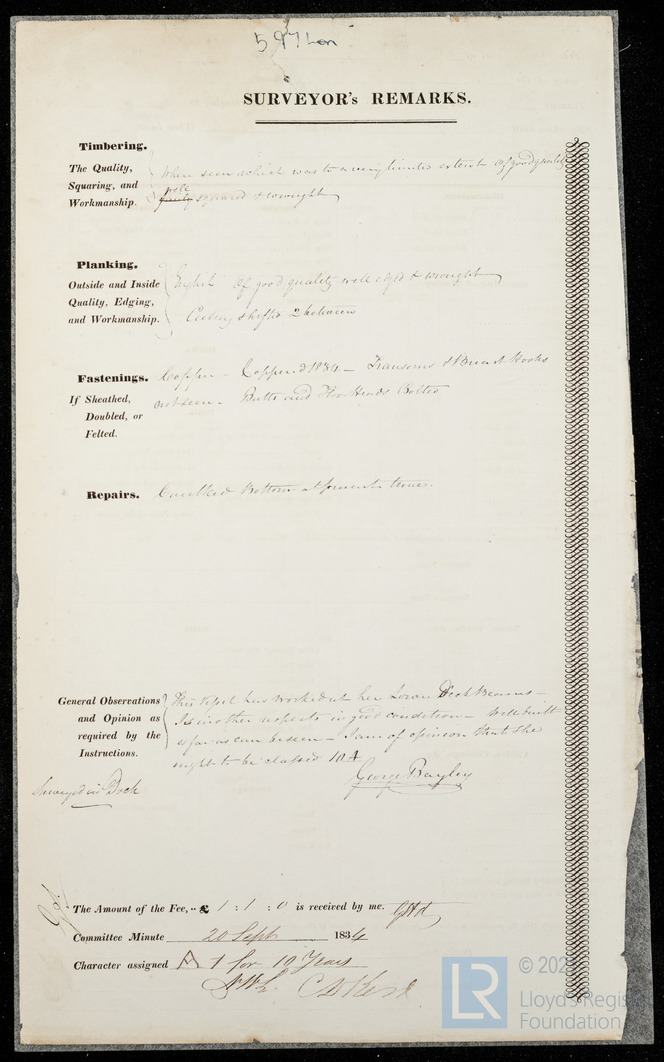 597 Lon
SURVEYOR's REMARKS.
Timbering.
The Quality, Squaring, and Workmanship.
Where seen which was to a very limited extent of good quality
well
fairly squared & wrought
Planking.
Outside and Inside Quality, Edging, and Workmanship.
English of good quality well edged & wrought
Ceiling shifted 2 between
Fastenings.
If Sheathed, Doubled, or Felted.
Copper - Coppered 1834 - Transoms & Breast Hooks
not seen - Butts and Floor Heads Bolted
Repairs.
Caulked Bottom at present time.
General Observations and Opinion as required by the Instructions.
This Vessel has worked at her Lower Deck Beams -
Is in other respects in good condition - Well built
as far as can be seen - I am of opinion that she
ought to be classed 10 A
George Bayley
Surveyed in Dock
The Amount of the Fee, £ 1 : 1 : 0 is received by me.
Committee Minute 20 Sept 1834
Character assigned A 1 for 10 Years
© 202
Lloyd's Register
Foundation
LR